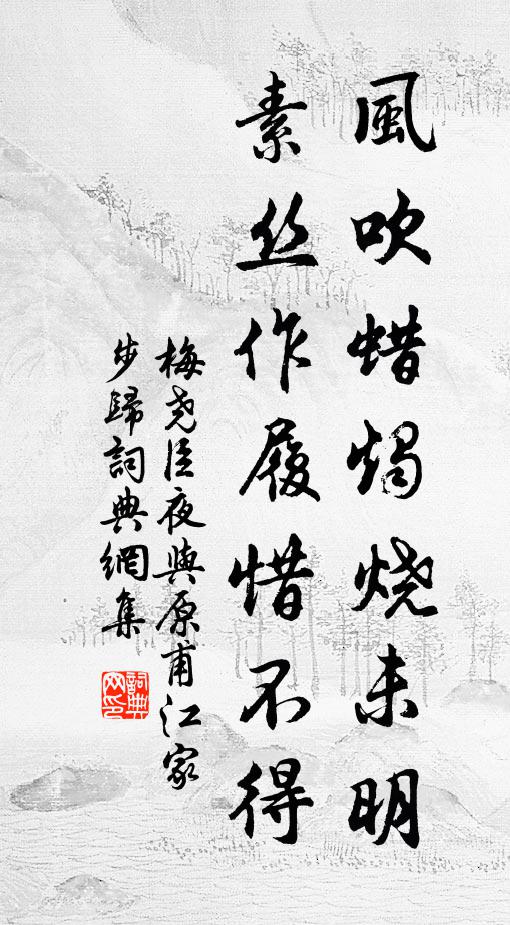 風吹蜡燭烧未明
素丝作履惜不得
梅尧臣夜與原甫江家
步歸詞典網集
詞典网印